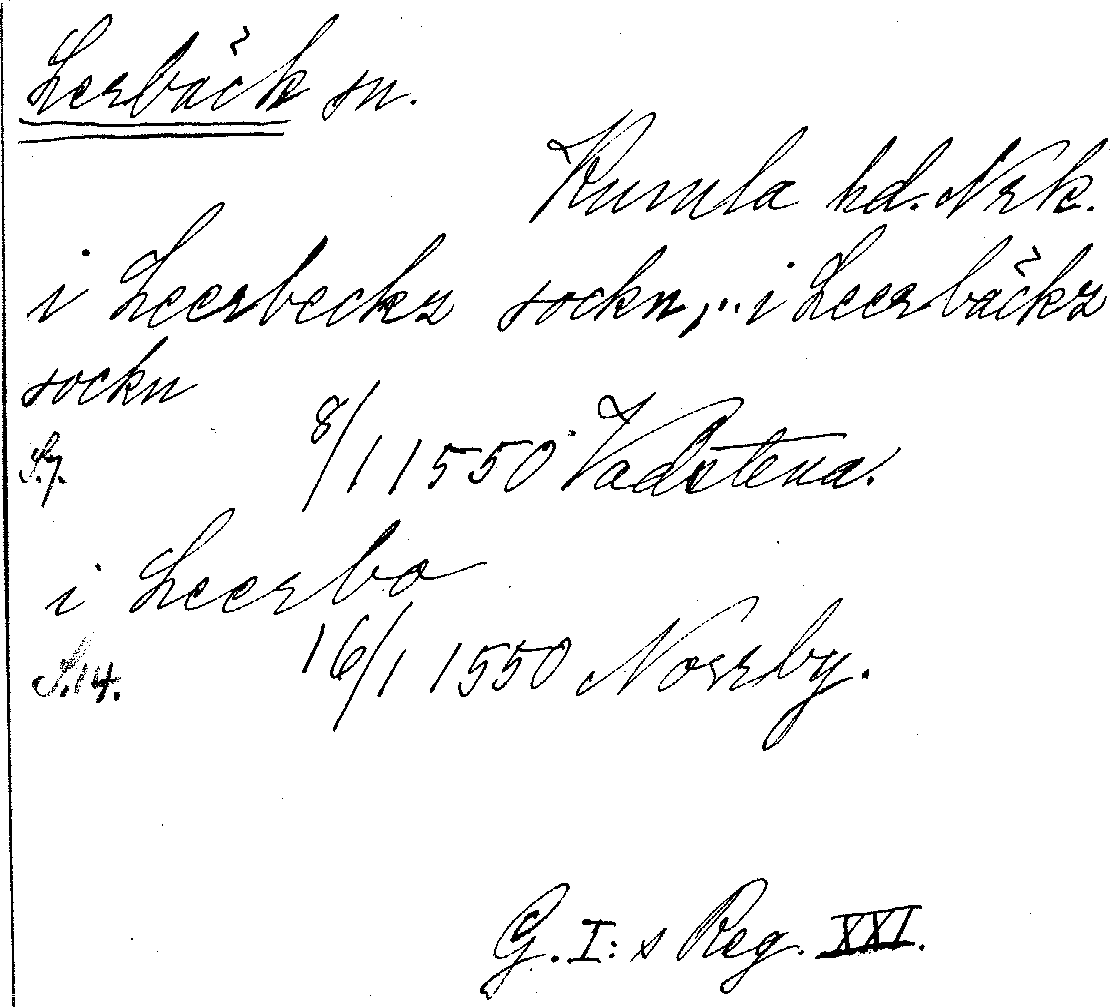 Lerbäck sn.
Kumla hd. Nrk.
i Leerbeckz sockn, .. i Leerbäckz
sockn
S.7. 8/1 1550 Vadstena.
i Leerbo
S.14. 16/1 1550 Norrby.
G. I:s Reg. XXI.